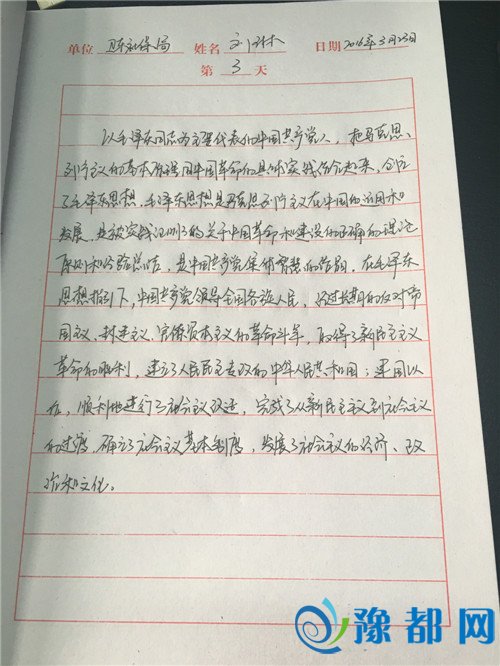 单位 人社保局 姓名 刘 林 日期 2016年3月23日
第 3 天
以毛泽东同志为主要代表的中国共产党人，把马克思
列宁主义的基本原理同中国革命的具体实践结合起来，创立
了毛泽东思想。毛泽东思想是马克思列宁主义在中国的运用和
发展，是被实践证明了的关于中国革命和建设的正确的理论
原则和经验总结，是中国共产党集体智慧的结晶。在毛泽东
思想指引下，中国共产党领导全国各族人民，经过长期的反对帝
国主义、封建主义、官僚资本主义的革命斗争，取得了新民主主义
革命的胜利，建立了人民民主专政的中华人民共和国；建国以
后，顺利地进行了社会主义改造，完成了从新民主主义到社会主义
的过渡，确立了社会主义基本制度，发展了社会主义的经济、政
治和文化。
豫都网